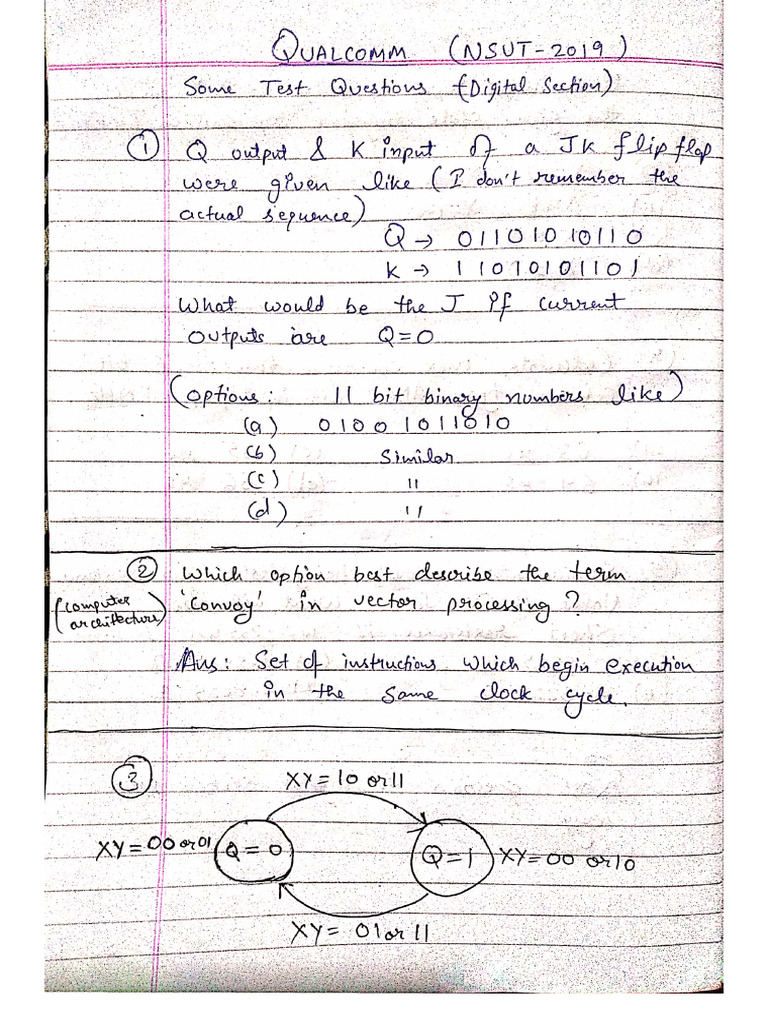 QUALCOMM (NSUT-2019)
Some Test Questions (Digital Section)
① Q output & K input of a JK flip flop
were given like (I don't remember the
actual sequence)
Q → 01101010110
K → 11010101101
What would be the J if current
outputs are Q=0
(options: 11 bit binary numbers like)
(a) 01001011010
(b) Similar
(c) "
(d) "
② Which option best describe the term
(computer architecture) 'convoy' in vector processing?
Ans: Set of instructions which begin execution
in the same clock cycle.
③
XY = 10 or 11
XY = 00 or 01 Q = 0 Q = 1 XY = 00 or 10
XY = 01 or 11